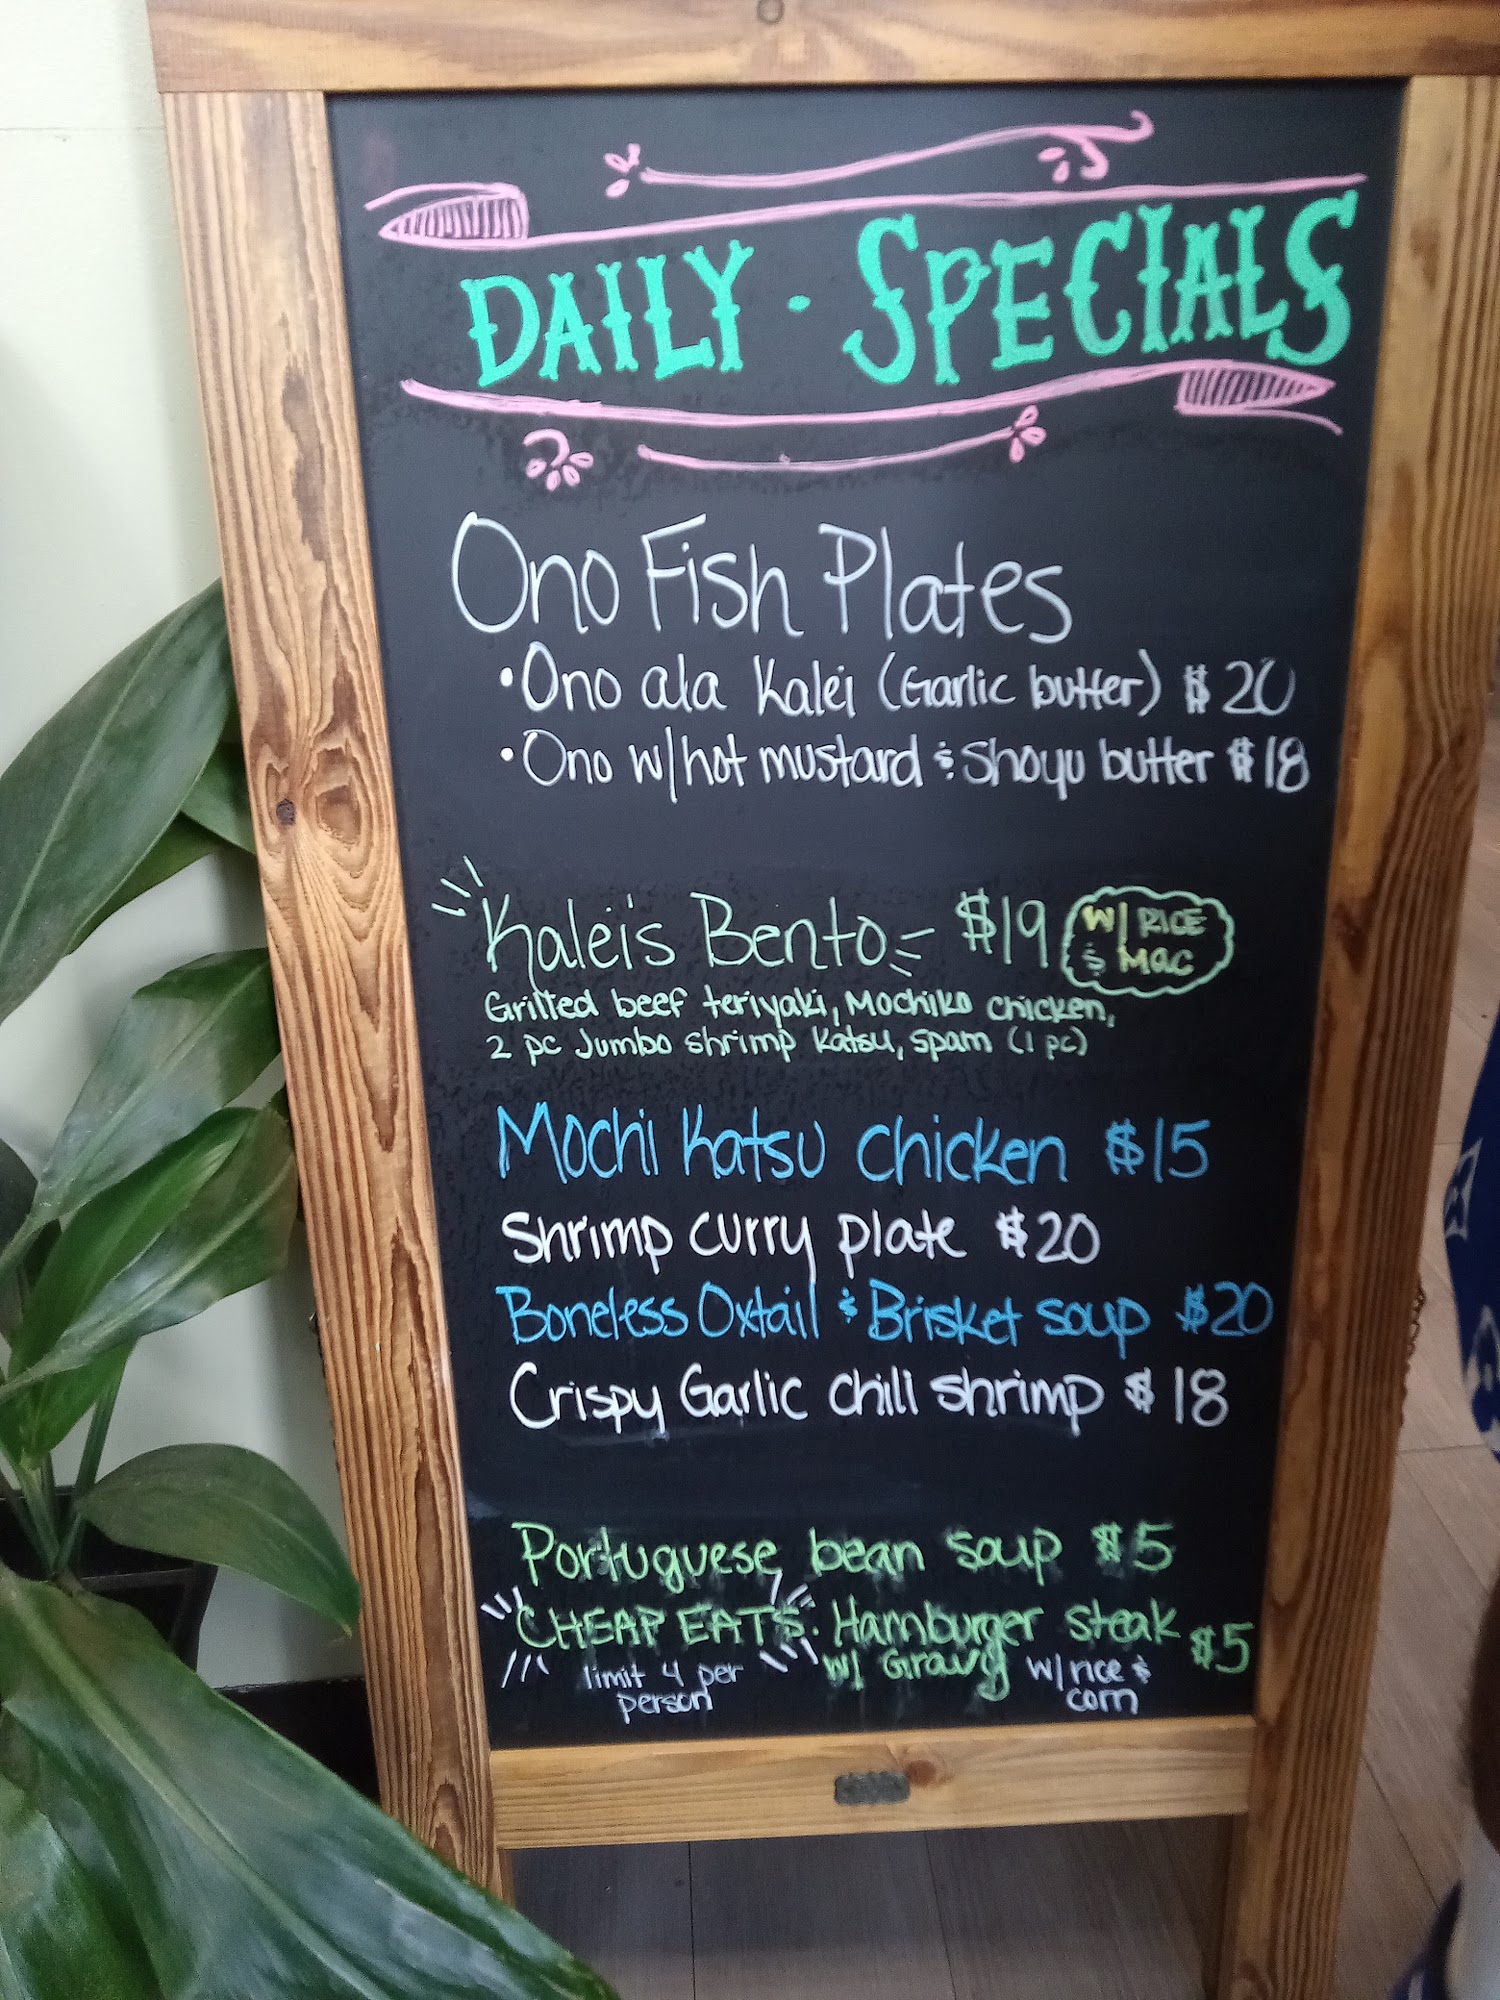 DAILY · SPECIALS
Ono Fish Plates
• Ono ala Kalei (Garlic butter) $20
• Ono w/hot mustard & Shoyu butter $18
Kalei's Bento $19 W/ RICE
& Mac
Grilled beef teriyaki, Mochiko chicken,
2 pc Jumbo shrimp Katsu, spam (1 pc)
Mochi Katsu chicken $15
Shrimp curry plate $20
Boneless Oxtail & Brisket soup $20
Crispy Garlic chili shrimp $18
Portuguese bean soup $5
CHEAP EATS. Hamburger steak $5
w/ Gravy w/rice &
corn
limit 4 per
person